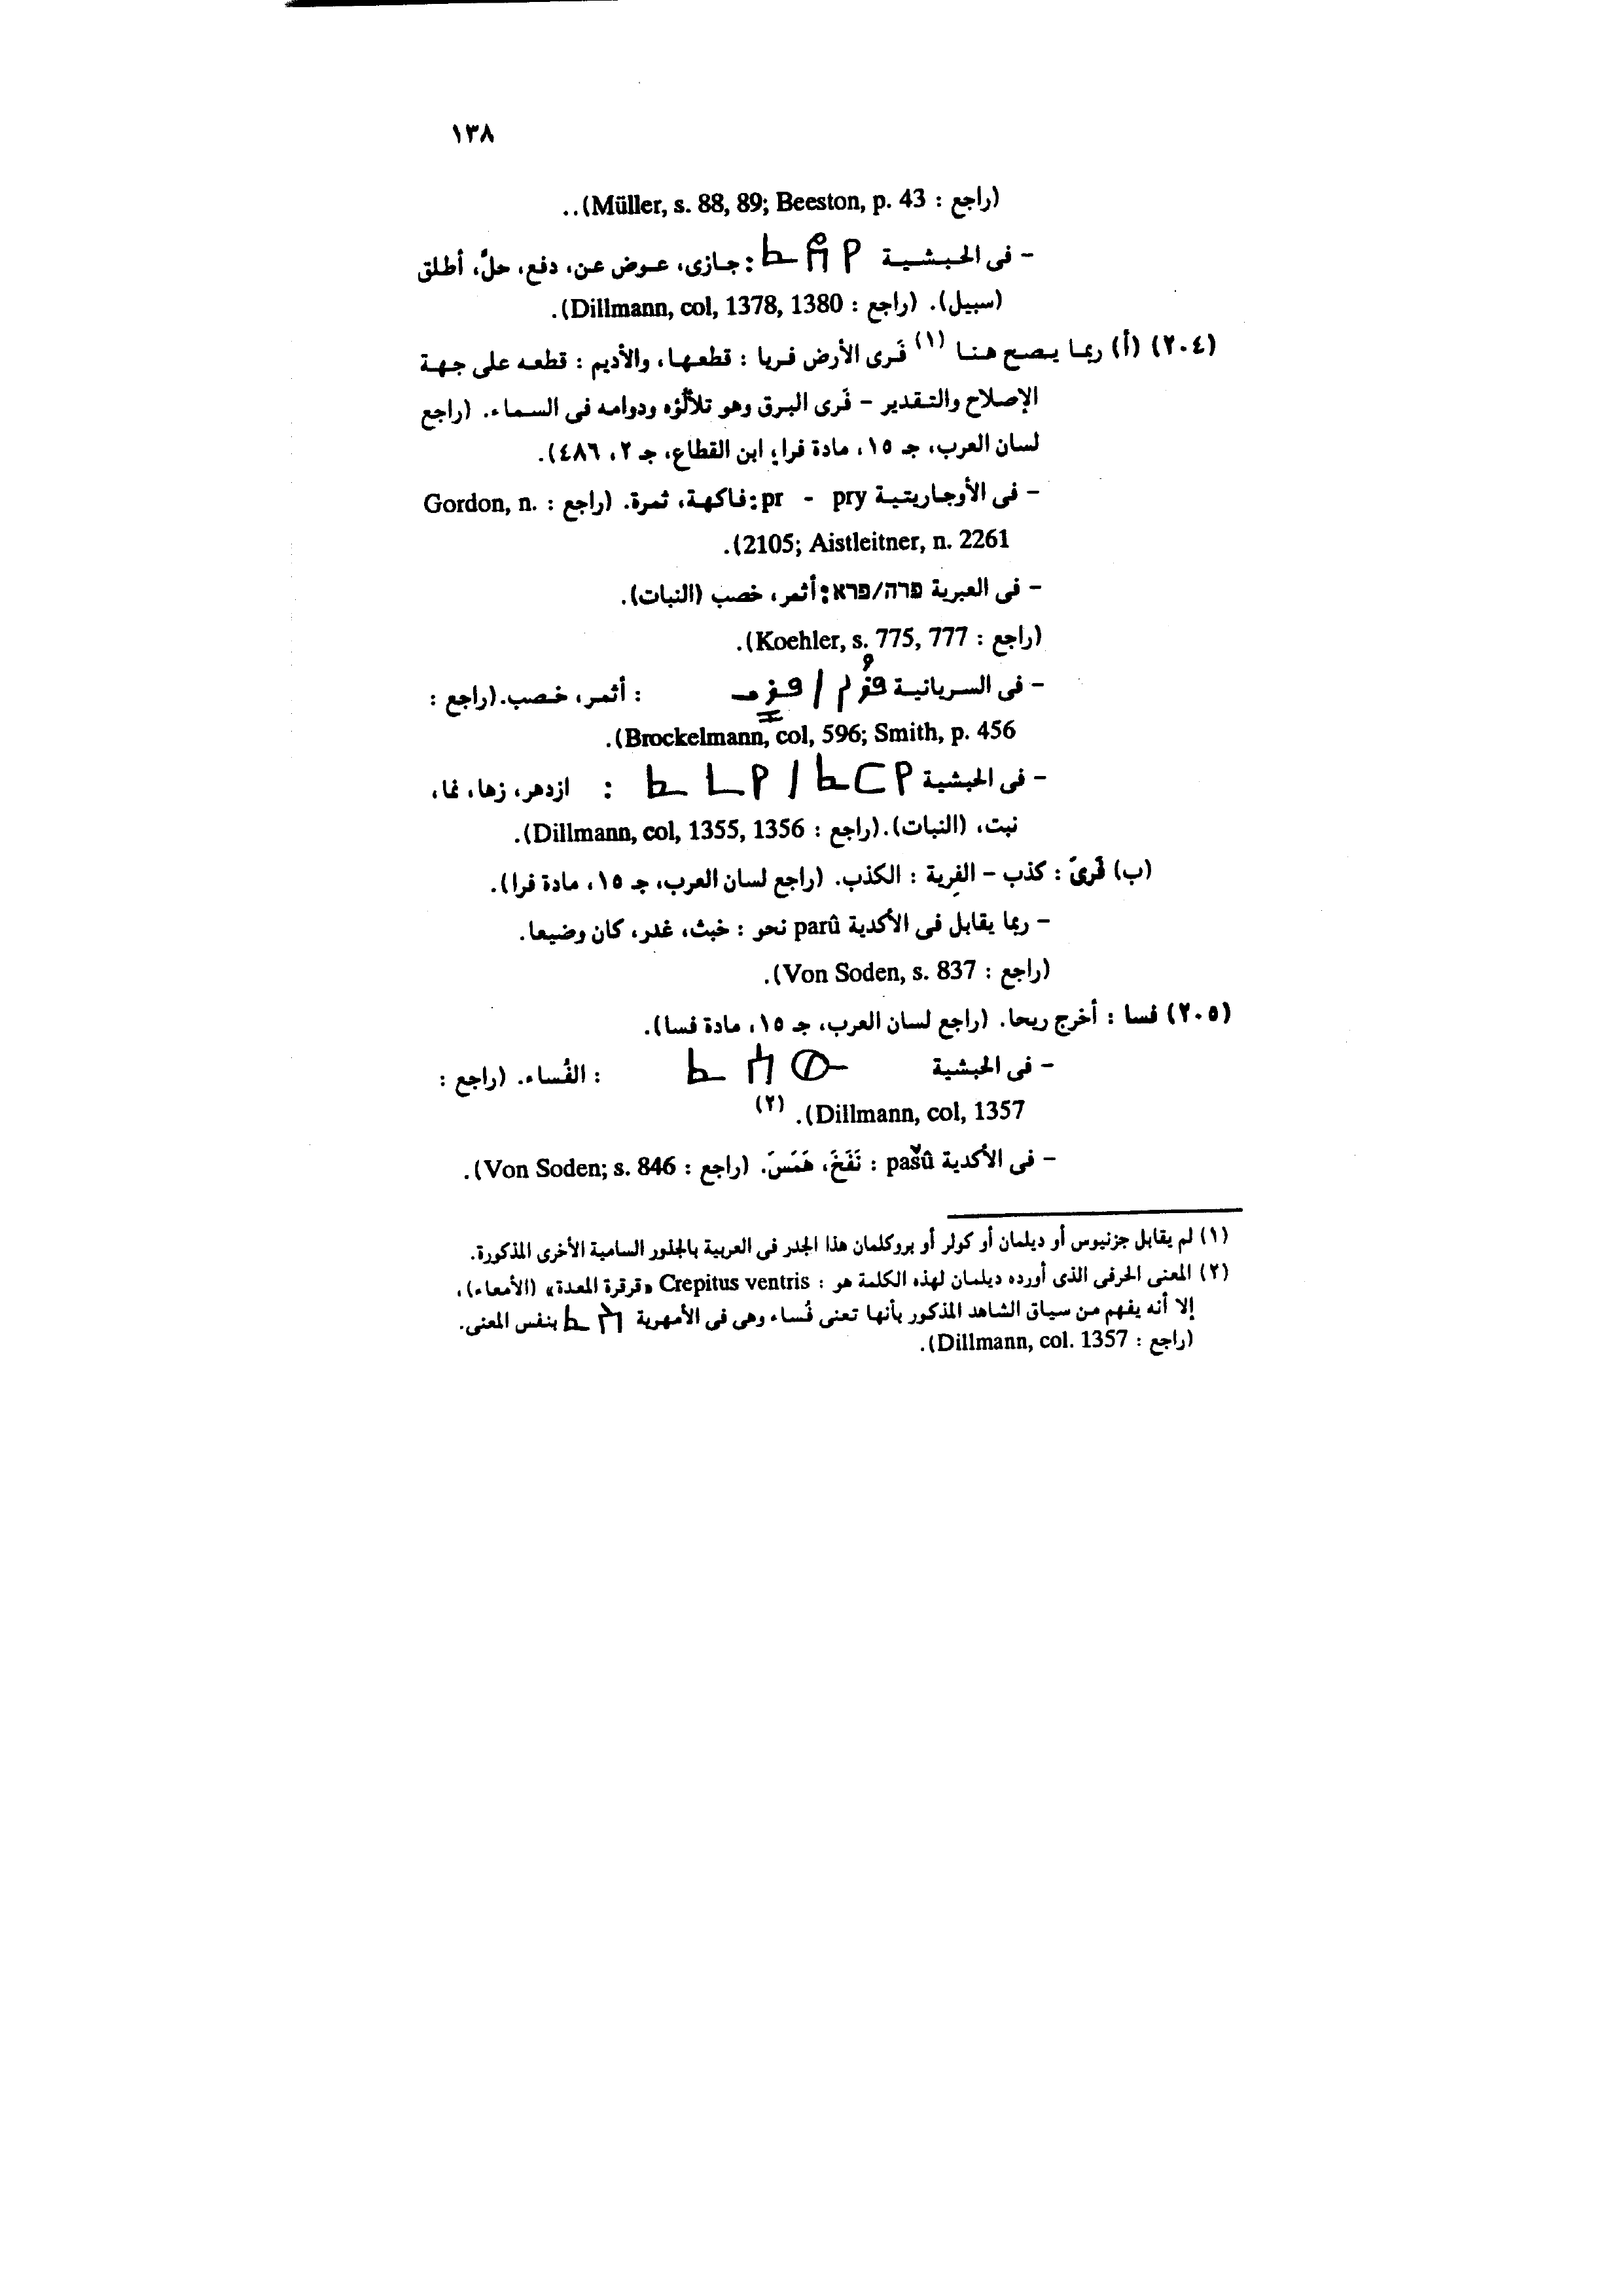 ١٣٨
(راجع : Müller, s. 88, 89; Beeston, p. 43)..
- فى الحبشية ፈደየ : جازى، عوض عن، دفع، حلّ، أطلق
(سبيل). (راجع : Dillmann, col, 1378, 1380).
(٢٠٤) (أ) ربما يصح هنا (١) فَرى الأرض فريا : قطعها، والأديم : قطعه على جهة
الإصلاح والتقدير - فَرى البرق وهو تلألُؤه ودوامه فى السماء. (راجع
لسان العرب، جـ ١٥، مادة فرا؛ ابن القطاع، جـ ٢، ٤٨٦).
- فى الأوجاريتية pr - pry : فاكهة، ثمرة. (راجع : Gordon, n.
2105; Aistleitner, n. 2261).
- فى العبرية פרה/פרא : أثمر، خصب (النبات).
(راجع : Koehler, s. 775, 777).
- فى السريانية : أثمر، خصب.(راجع :
Brockelmann, col, 596; Smith, p. 456).
- فى الحبشية : ازدهر، زها، نما،
نبت، (النبات).(راجع : Dillmann, col, 1355, 1356).
(ب) فَرىَ : كذب - الفِرية : الكذب. (راجع لسان العرب، جـ ١٥، مادة فرا).
- ربما يقابل فى الأكدية parû نحو : خبث، غدر، كان وضيعا.
(راجع : Von Soden, s. 837).
(٢٠٥) فسا : أخرج ريحا. (راجع لسان العرب، جـ ١٥، مادة فسا).
- فى الحبشية : الفُساء. (راجع :
Dillmann, col, 1357). (٢)
- فى الأكدية pašû : نَفَخَ، هَمَسَ. (راجع : Von Soden; s. 846).
(١) لم يقابل جزنيوس أو ديلمان أو كولر أو بروكلمان هذا الجدر فى العربية بالجذور السامية الأخرى المذكورة.
(٢) المعنى الحرفى الذى أورده ديلمان لهذه الكلمة هو : Crepitus ventris «قرقرة المعدة» (الأمعاء)،
إلا أنه يفهم من سياق الشاهد المذكور بأنها تعنى فُساء وهى فى الأمهرية بنفس المعنى.
(راجع : Dillmann, col. 1357).